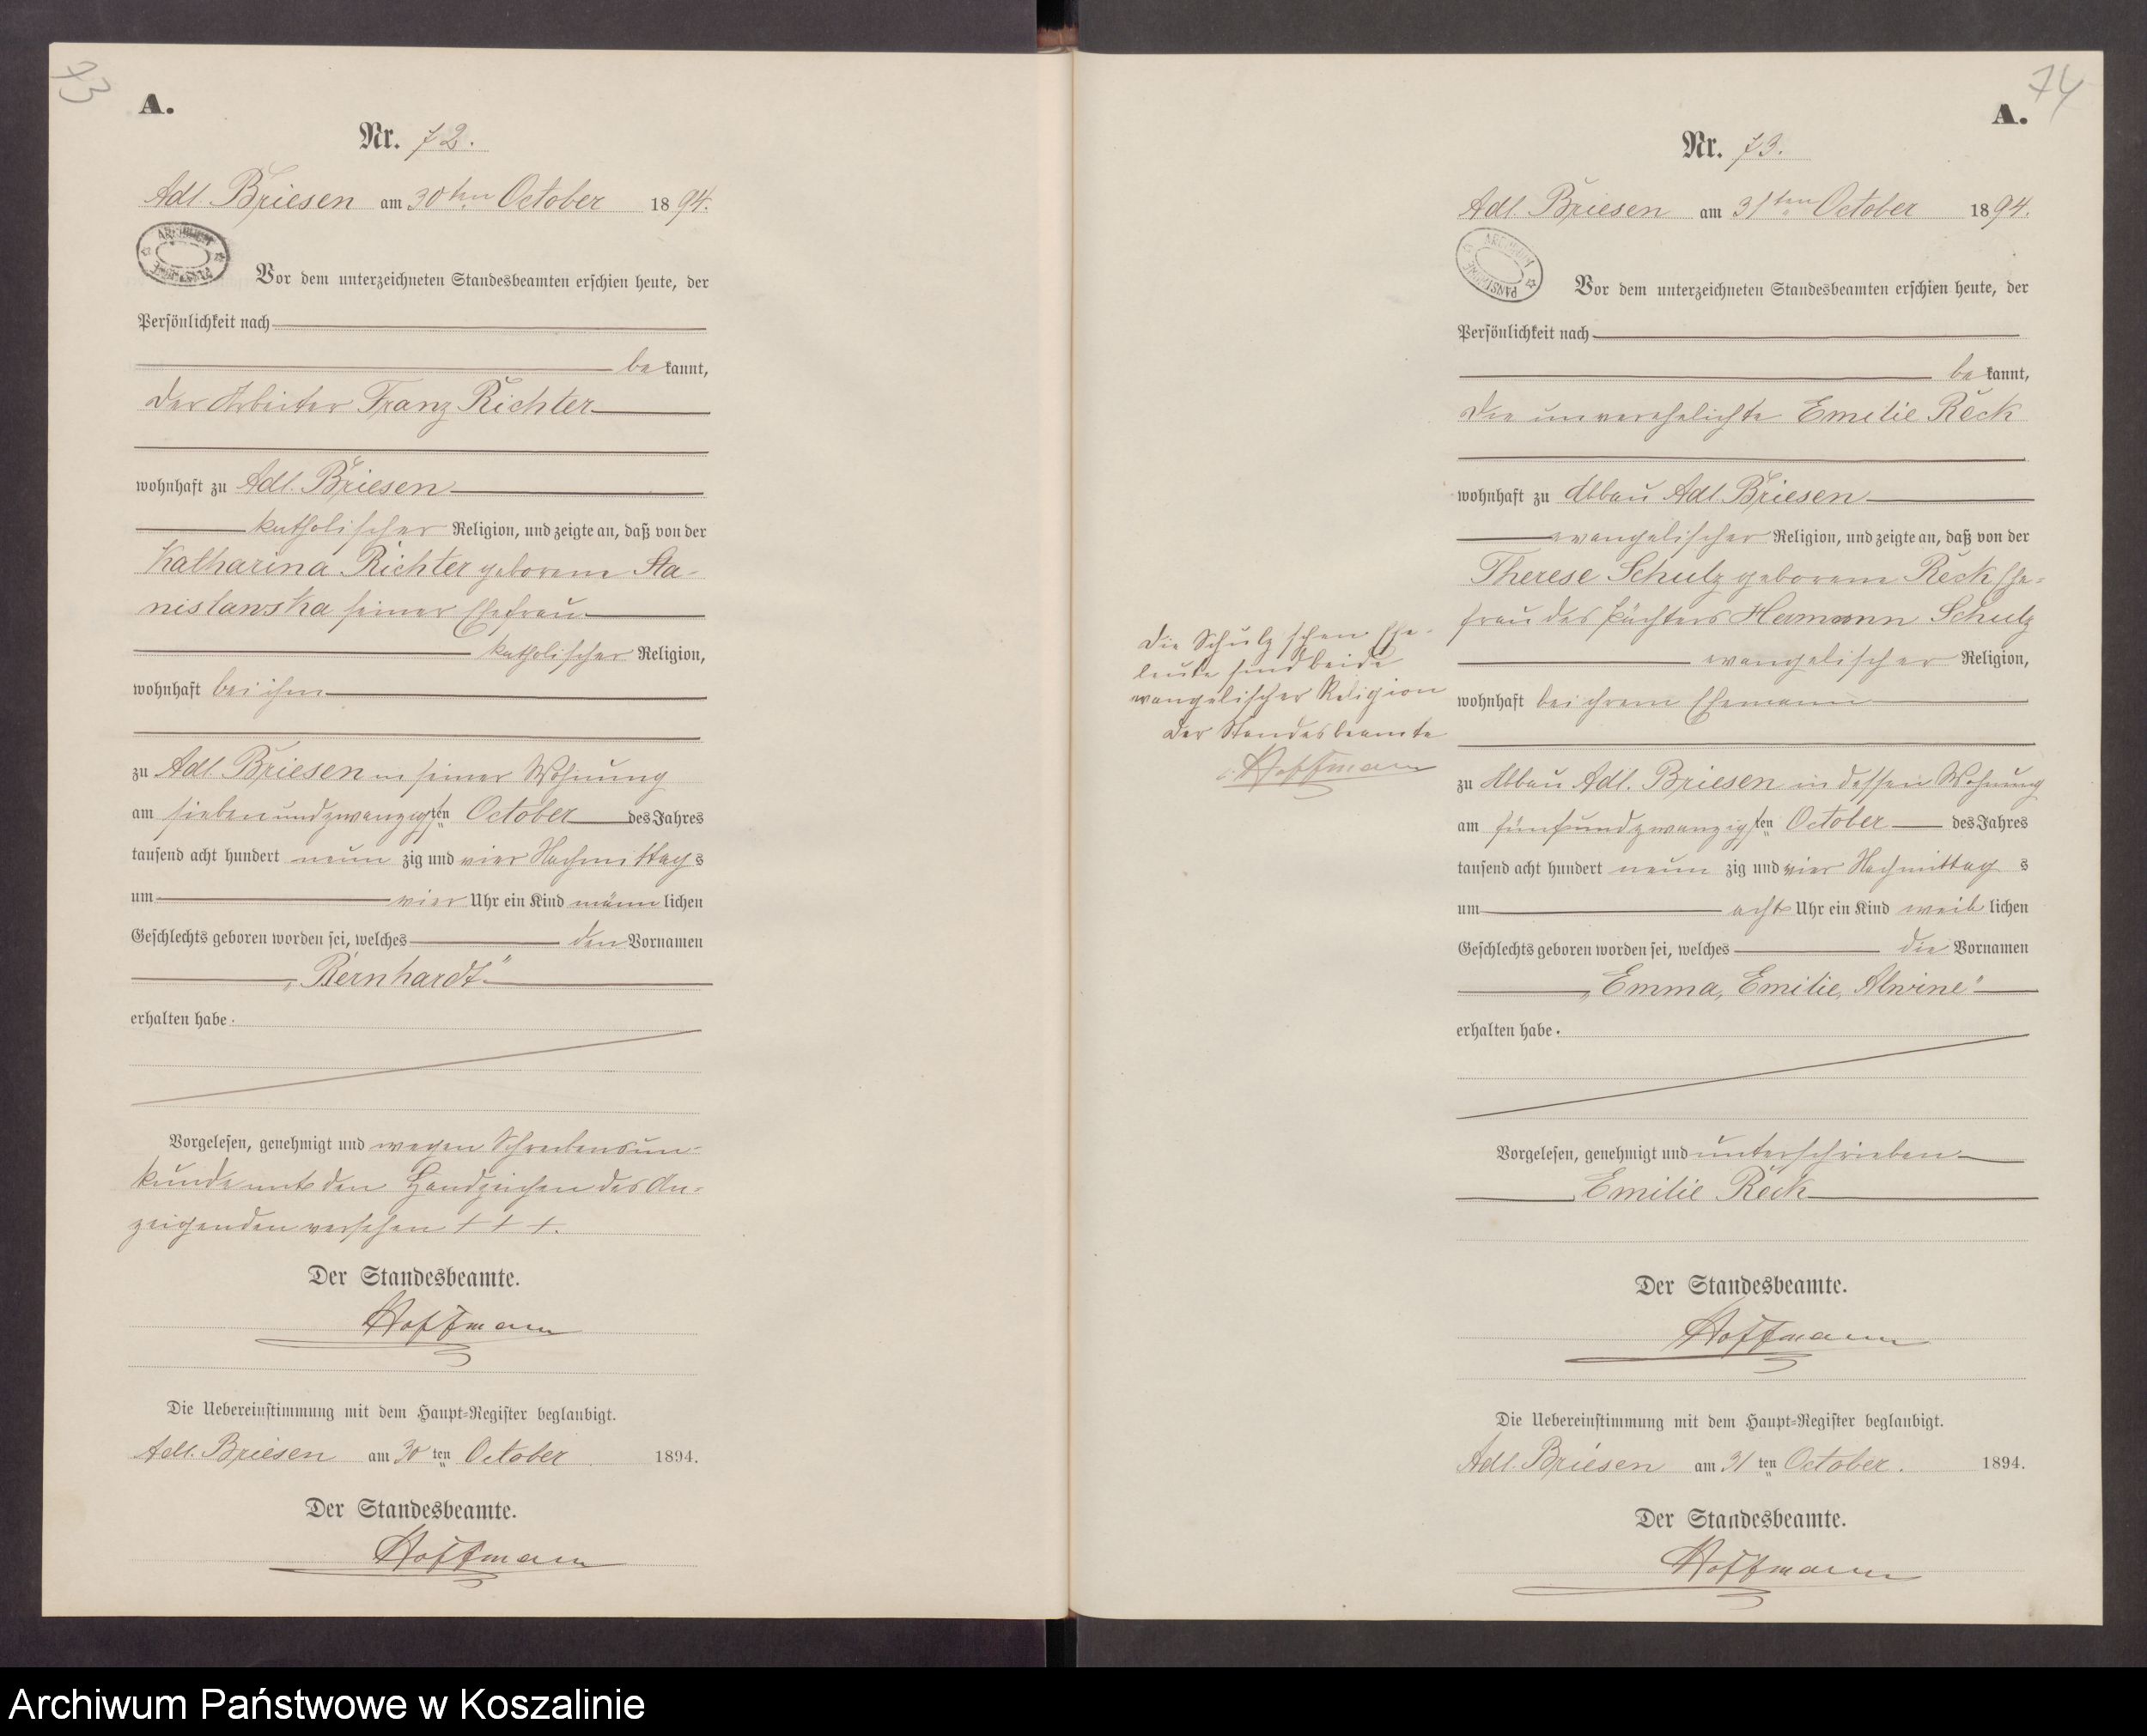 73
A.
Nr. 72.
Adl. Briesen am 30ten October 1894.
ARCHIWUM PAŃSTWOWE
Vor dem unterzeichneten Standesbeamten erschien heute, der
Persönlichkeit nach
bekannt,
der Arbeiter Franz Richter
wohnhaft zu Adl. Briesen
katholischer Religion, und zeigte an, daß von der
Katharina Richter geborene Sta-
nislawska seiner Ehefrau
katholischer Religion,
wohnhaft bei ihm
zu Adl. Briesen in seiner Wohnung
am siebenundzwanzigsten October des Jahres
tausend acht hundert neunzig und vier Nachmittags
um vier Uhr ein Kind männlichen
Geschlechts geboren worden sei, welches den Vornamen
„Bernhardt“
erhalten habe.
Vorgelesen, genehmigt und wegen Schreibensun-
kunde mit den Handzeichen des An-
zeigenden versehen + + +.
Der Standesbeamte.
Hoffmann
Die Uebereinstimmung mit dem Haupt-Register beglaubigt.
Adl. Briesen am 30ten October 1894.
Der Standesbeamte.
Hoffmann
74
A.
Nr. 73.
Adl. Briesen am 31ten October 1894.
ARCHIWUM PAŃSTWOWE
Vor dem unterzeichneten Standesbeamten erschien heute, der
Persönlichkeit nach
bekannt,
die unverehelichte Emilie Reck
wohnhaft zu Abbau Adl. Briesen
evangelischer Religion, und zeigte an, daß von der
Therese Schulz geborene Reck Ehe-
frau des Pächters Hermann Schulz
evangelischer Religion,
wohnhaft bei ihrem Ehemann
zu Abbau Adl. Briesen in dessen Wohnung
am fünfundzwanzigsten October des Jahres
tausend acht hundert neunzig und vier Nachmittags
um acht Uhr ein Kind weiblichen
Geschlechts geboren worden sei, welches die Vornamen
„Emma, Emilie, Alwine“
erhalten habe.
Die Schulz'schen Ehe-
leute sind beide
evangelischer Religion
Der Standesbeamte
Hoffmann
Vorgelesen, genehmigt und unterschrieben
Emilie Reck
Der Standesbeamte.
Hoffmann
Die Uebereinstimmung mit dem Haupt-Register beglaubigt.
Adl. Briesen am 31ten October. 1894.
Der Standesbeamte.
Hoffmann
Archiwum Państwowe w Koszalinie